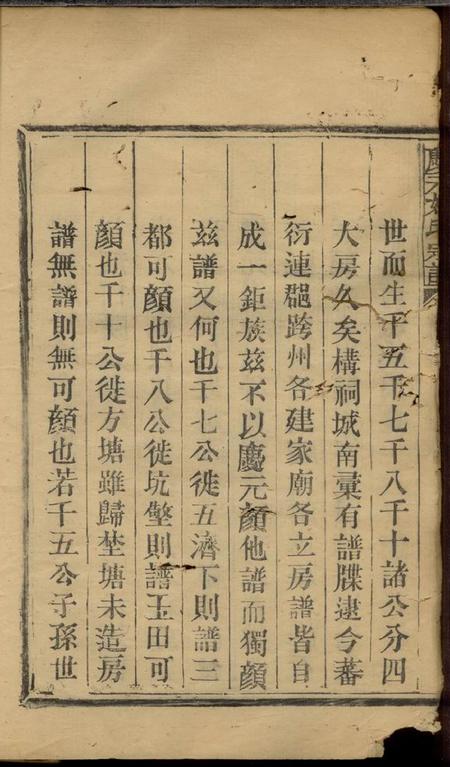 世而生千五千七千八千十諸公分四
大房久矣構祠城南彙有譜牒逮今蕃
衍連郡跨州各建家廟各立房譜皆自
成一鉅族茲不以慶元顏他譜而獨顏
茲譜又何也千七公徙五濟下則譜三
都可顏也千八公徙坑壑則譜玉田可
顏也千十公徙方塘雖歸埜塘未造房
譜無譜則無可顏也若千五公子孫世